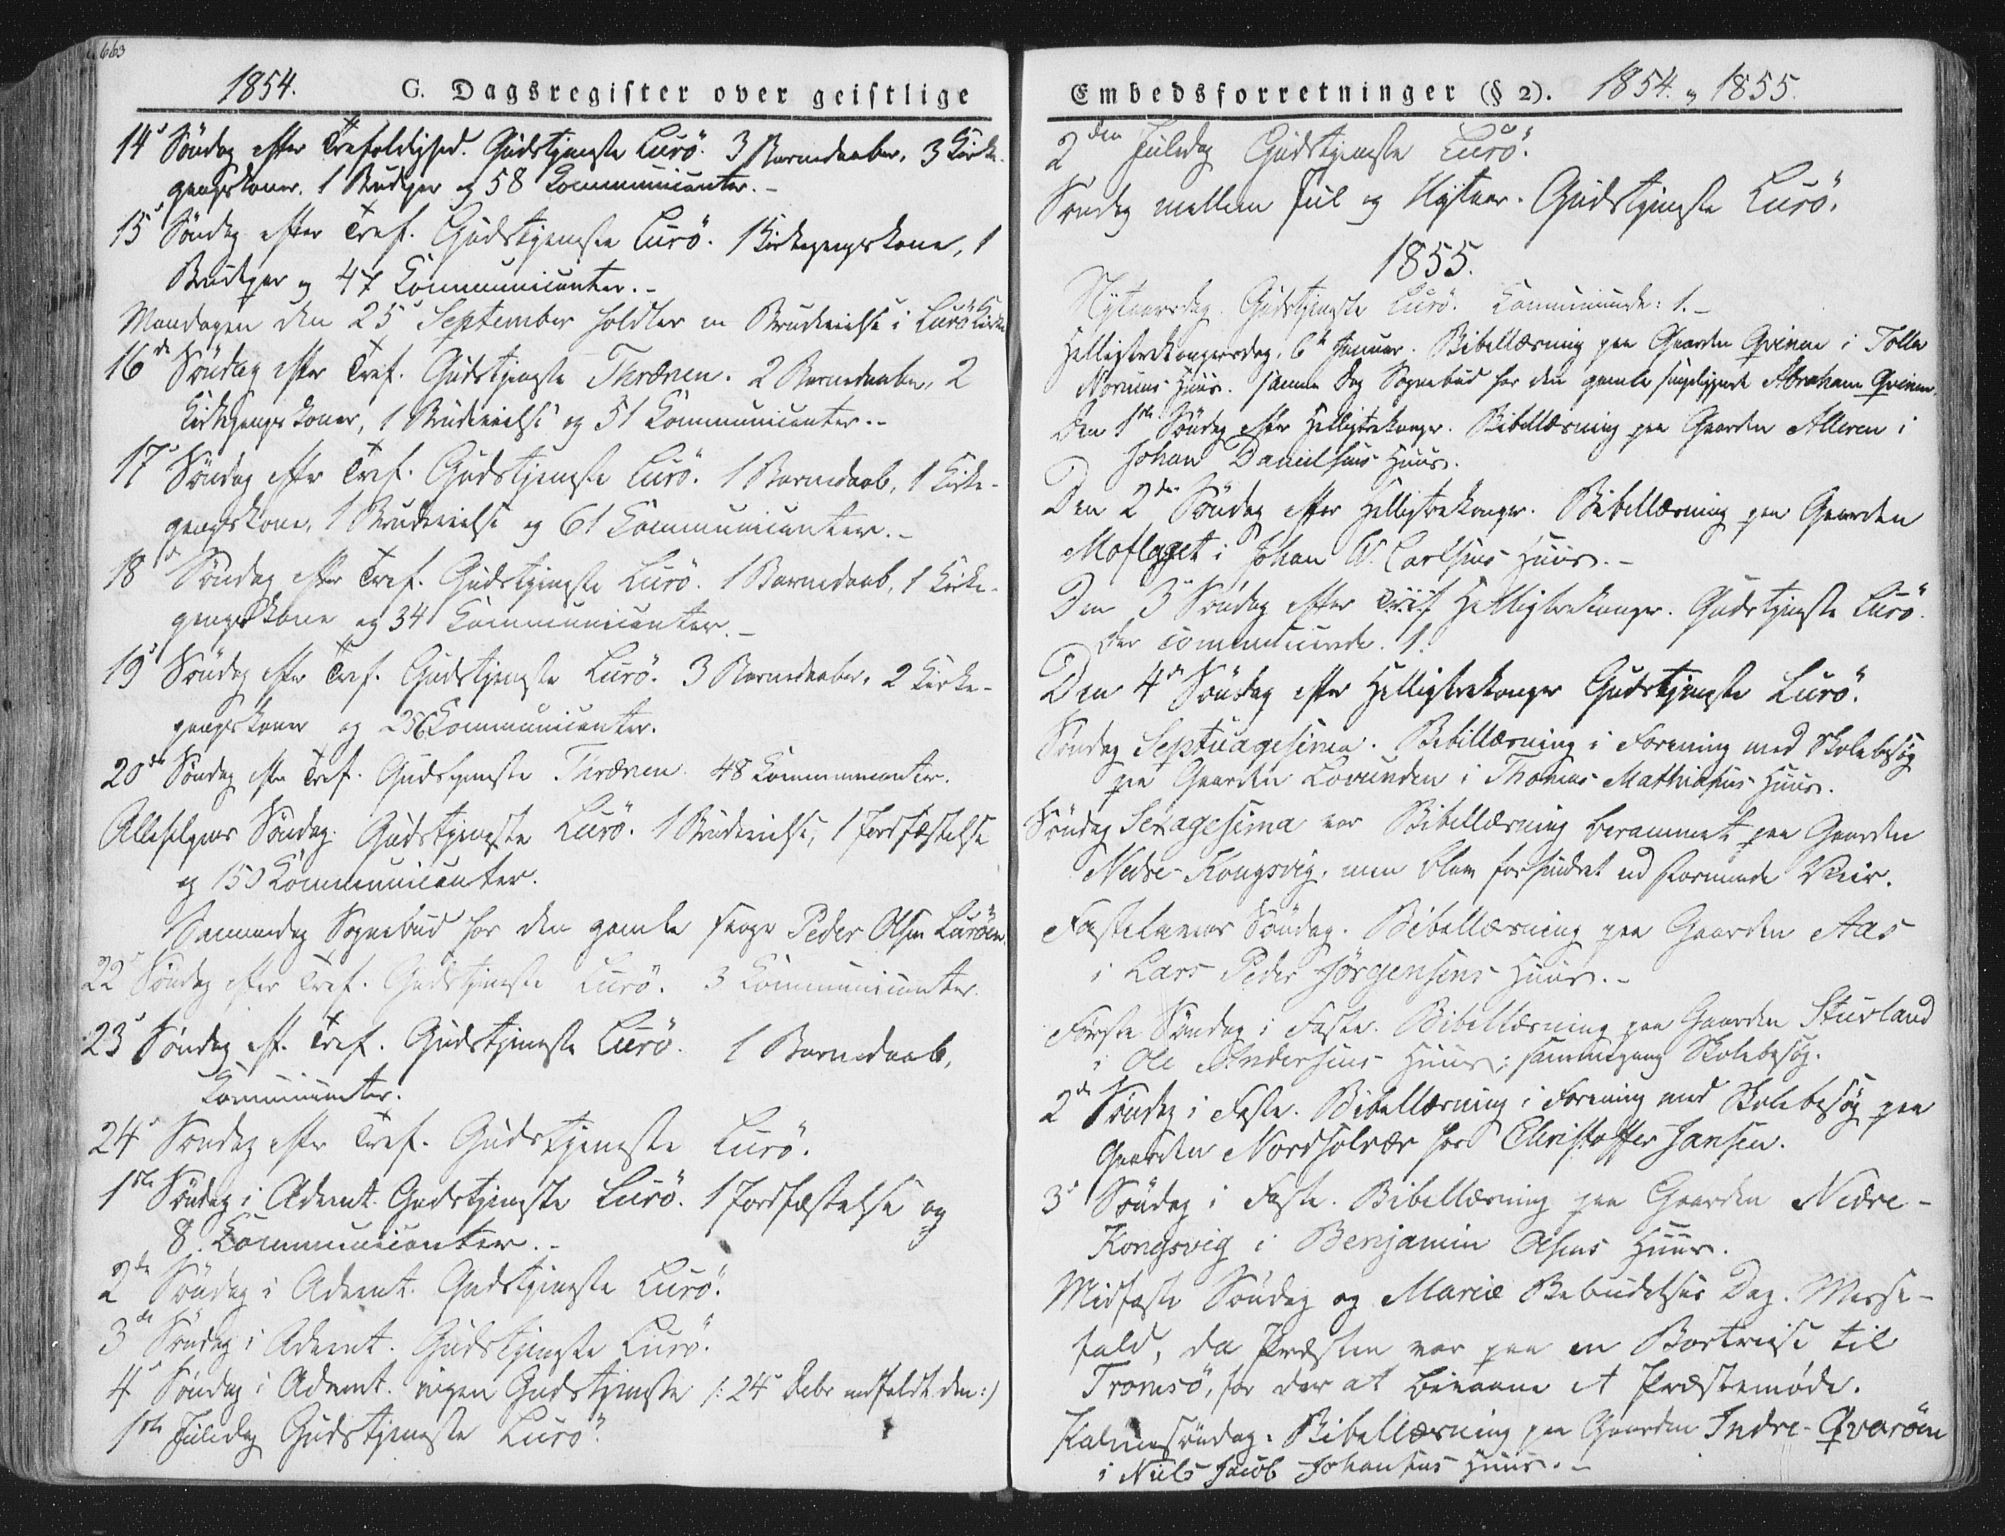 663
1854.
G. Dagsregister over geistlige
14de Søndag efter Trefoldighed. Gudstjeneste Lurö. 3 Barnedaaber, 3 Kirke-
gangskoner, 1 Brudepar og 58 Communicanter.-
15de Søndag efter Tref. Gudstjeneste Lurö. 1 Kirkegangskone, 1
Brudepar og 47 Communicanter.-
Mandagen den 25de September holdtes en Brudevielse i Lurö Kirke
16de Søndag efter Tref. Gudstjeneste Thrænen. 2 Barnedaaber, 2
Kirkegangskoner, 1 Brudevielse og 51 Communicanter.-
17de Søndag efter Tref. Gudstjeneste Lurö. 1 Barnedaab, 1 Kirke-
gangskone, 1 Brudevielse og 61 Communicanter.-
18de Søndag efter Tref. Gudstjeneste Lurö. 1 Barnedaab, 1 Kirke-
gangskone og 34 Communicanter.-
19de Søndag efter Tref. Gudstjeneste Lurö. 3 Barnedaaber, 2 Kirke-
gangskoner og Communicanter.
20de Søndag efter Tref. Gudstjeneste Thrænen. 48 Communicanter.
Allehelgens Søndag. Gudstjeneste Lurö. 1 Brudevielse, 1 Jordfæstelse
og 150 Communicanter.
Sammedag Sognebud hos den gamle syge Peder Olsen Luröen.
22de Søndag efter Tref. Gudstjeneste Lurö. 3 Communicanter.
23de Søndag eft. Tref. Gudstjeneste Lurö. 1 Barnedaab,
Communicanter.
24de Søndag efter Tref. Gudstjeneste Lurö.
1ste Søndag i Advent. Gudstjeneste Lurö. 1 Jordfæstelse og
8 Communicanter.-
2de Søndag i Advent. Gudstjeneste Lurö.
3de Søndag i Advent. Gudstjeneste Lurö.
4de Søndag i Advent. ingen Gudstjeneste /: 24de Decbr indfaldt den :/
1ste Juledag Gudstjeneste Lurö.
Embedsforretninger (§ 2). 1854. og 1855.
2den Juledag Gudstjeneste Lurö.
Søndag mellem Jul og Nytaar. Gudstjeneste Lurö.
1855.
Nytaarsdag. Gudstjeneste Lurö. Communicerede: 1.-
Helligtrekongersdag, 6te Januar. Bibellæsning paa Gaarden Qvinne i Tolle
Huus. samme Dag Sognebud hos den gamle Abraham Qvinne.
Den 1ste Søndag efter Helligtrekonger. Bibellæsning paa Gaarden Alleren i
Johan Danielsens Huus.
Den 2de Søndag efter Helligtrekonger. Bibellæsning paa Gaarden
Moflaget i Johan A. Carlsens Huus.-
Den 3de Søndag efter Tref Helligtrekonger. Gudstjeneste Lurö.
Der communicerede. 1.
Den 4de Søndag efter Helligtrekonger Gudstjeneste Lurö.
Søndag Septuagesima. Bibellæsning i Forening med Skolebesøg
paa Gaarden Lovunden i Thomas Mathiasens Huus.
Søndag Sexagesima var Bibellæsning berammet paa Gaarden
Nedre-Kongsvig, men blev forhindret ved stormende Veir.
Fastelavns Søndag. Bibellæsning paa Gaarden Aas
i Lars Peder Jörgensens Huus.-
Første Søndag i Faste. Bibellæsning paa Gaarden Stuvland
i Ole Andersens Huus; sammegang Skolebesøg.
2de Søndag i Faste. Bibellæsning i Forening med Skolebesøg paa
Gaarden Nordsolvær hos Christoffer Jansen.
3de Søndag i Faste. Bibellæsning paa Gaarden Nedre-
Kongsvig i Benjamin Olsens Huus.
Midfaste Søndag og Mariæ Bebudelses Dag. Messe-
fald, da Præsten var paa en Bortreise til
Tromsö, for der at bivaane et Præstemøde.
Palmesöndag. Bibellæsning paa Gaarden Indre-Qvaröen
i Niels Jacob Johansens Huus.-